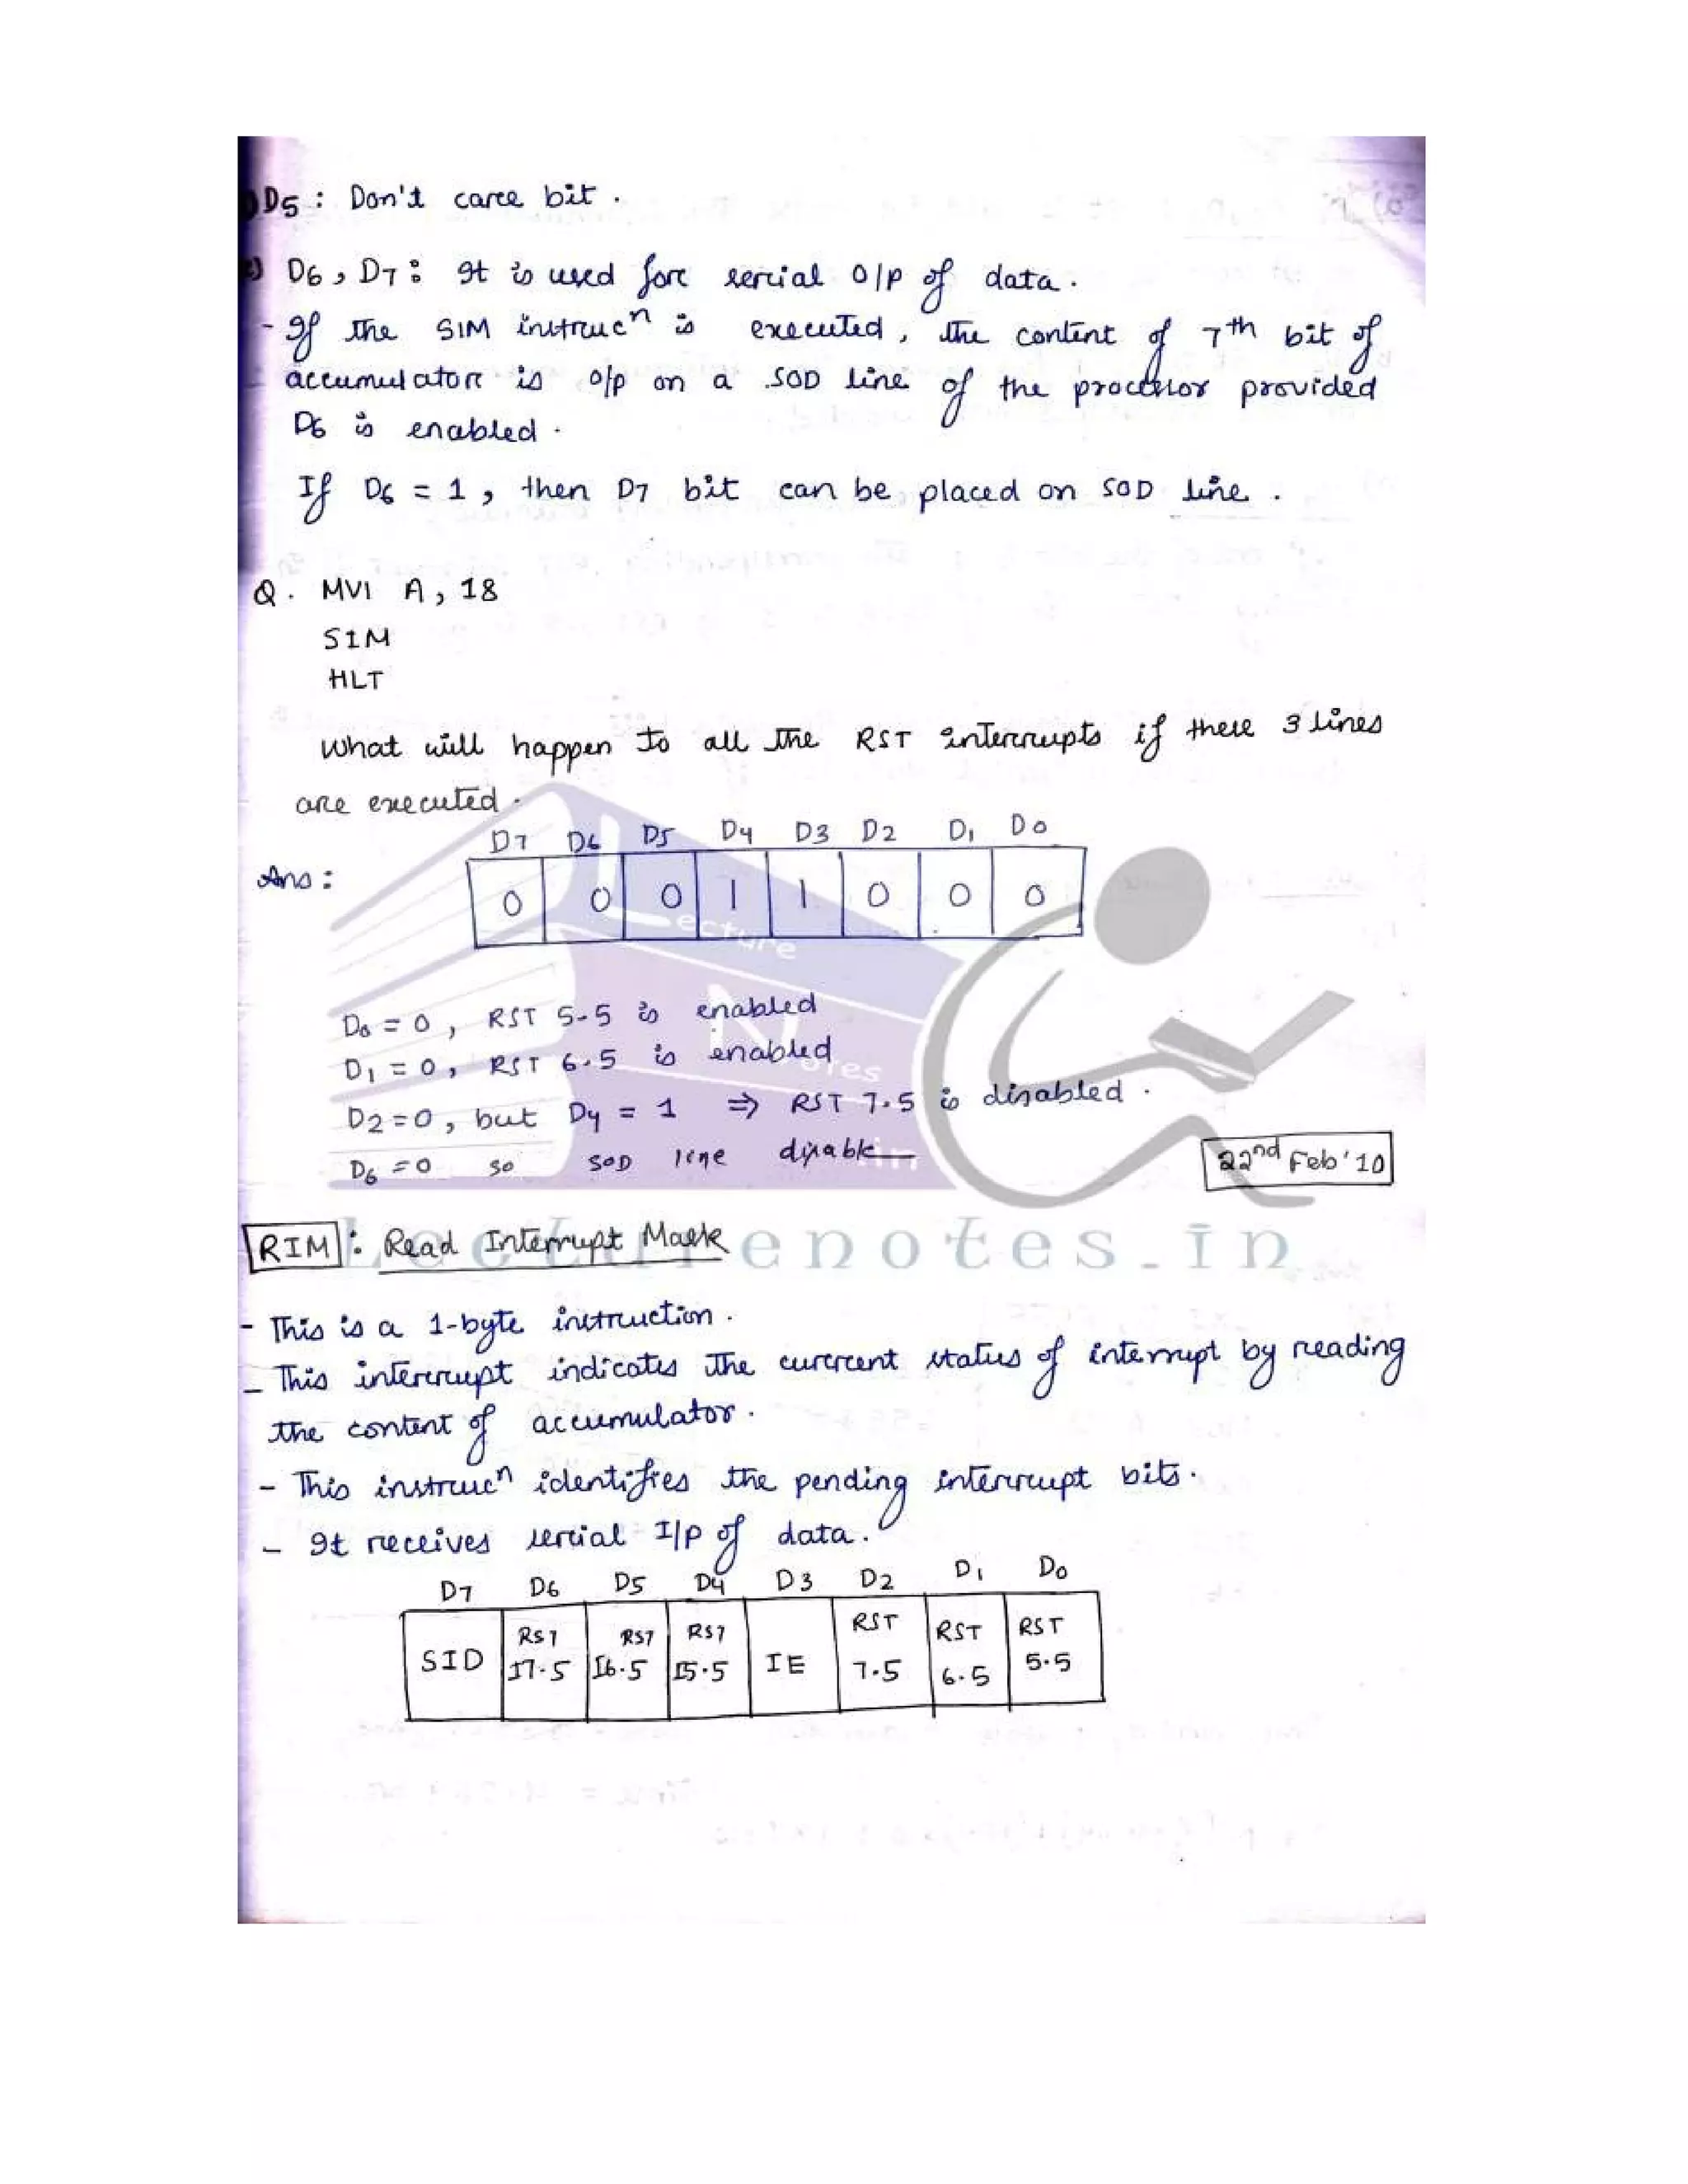 D5 : Don't care bit .
D6 , D7 : It is used for serial O/P of data .
- If the SIM instrucn is executed , the content of 7th bit of
accumulator is o/p on a .SOD line of the processor provided
D6 is enabled .
If D6 = 1 , then D7 bit can be placed on SOD line .
Q . MVI A , 18
SIM
HLT
What will happen to all the RST interrupts if these 3 lines
are executed .
D7 D6 D5 D4 D3 D2 D1 D0
Ans :
0 0 0 1 1 0 0 0
D0 = 0 , RST 5.5 is enabled
D1 = 0 , RST 6.5 is enabled
D2 = 0 , but D4 = 1 ⇒ RST 7.5 is disabled .
D6 = 0 so SOD line disable
22nd Feb '10
RIM : Read Interrupt Mask
- This is a 1-byte instruction .
- This interrupt indicates the current status of interrupt by reading
the content of accumulator .
- This instrucn identifies the pending interrupt bits .
- It receives serial I/P of data .
D7 D6 D5 D4 D3 D2 D1 D0
RST RST RST RST RST RST
SID I7.5 I6.5 I5.5 IE 7.5 6.5 5.5
Lecture
Notes
.in
Lecturenotes.in